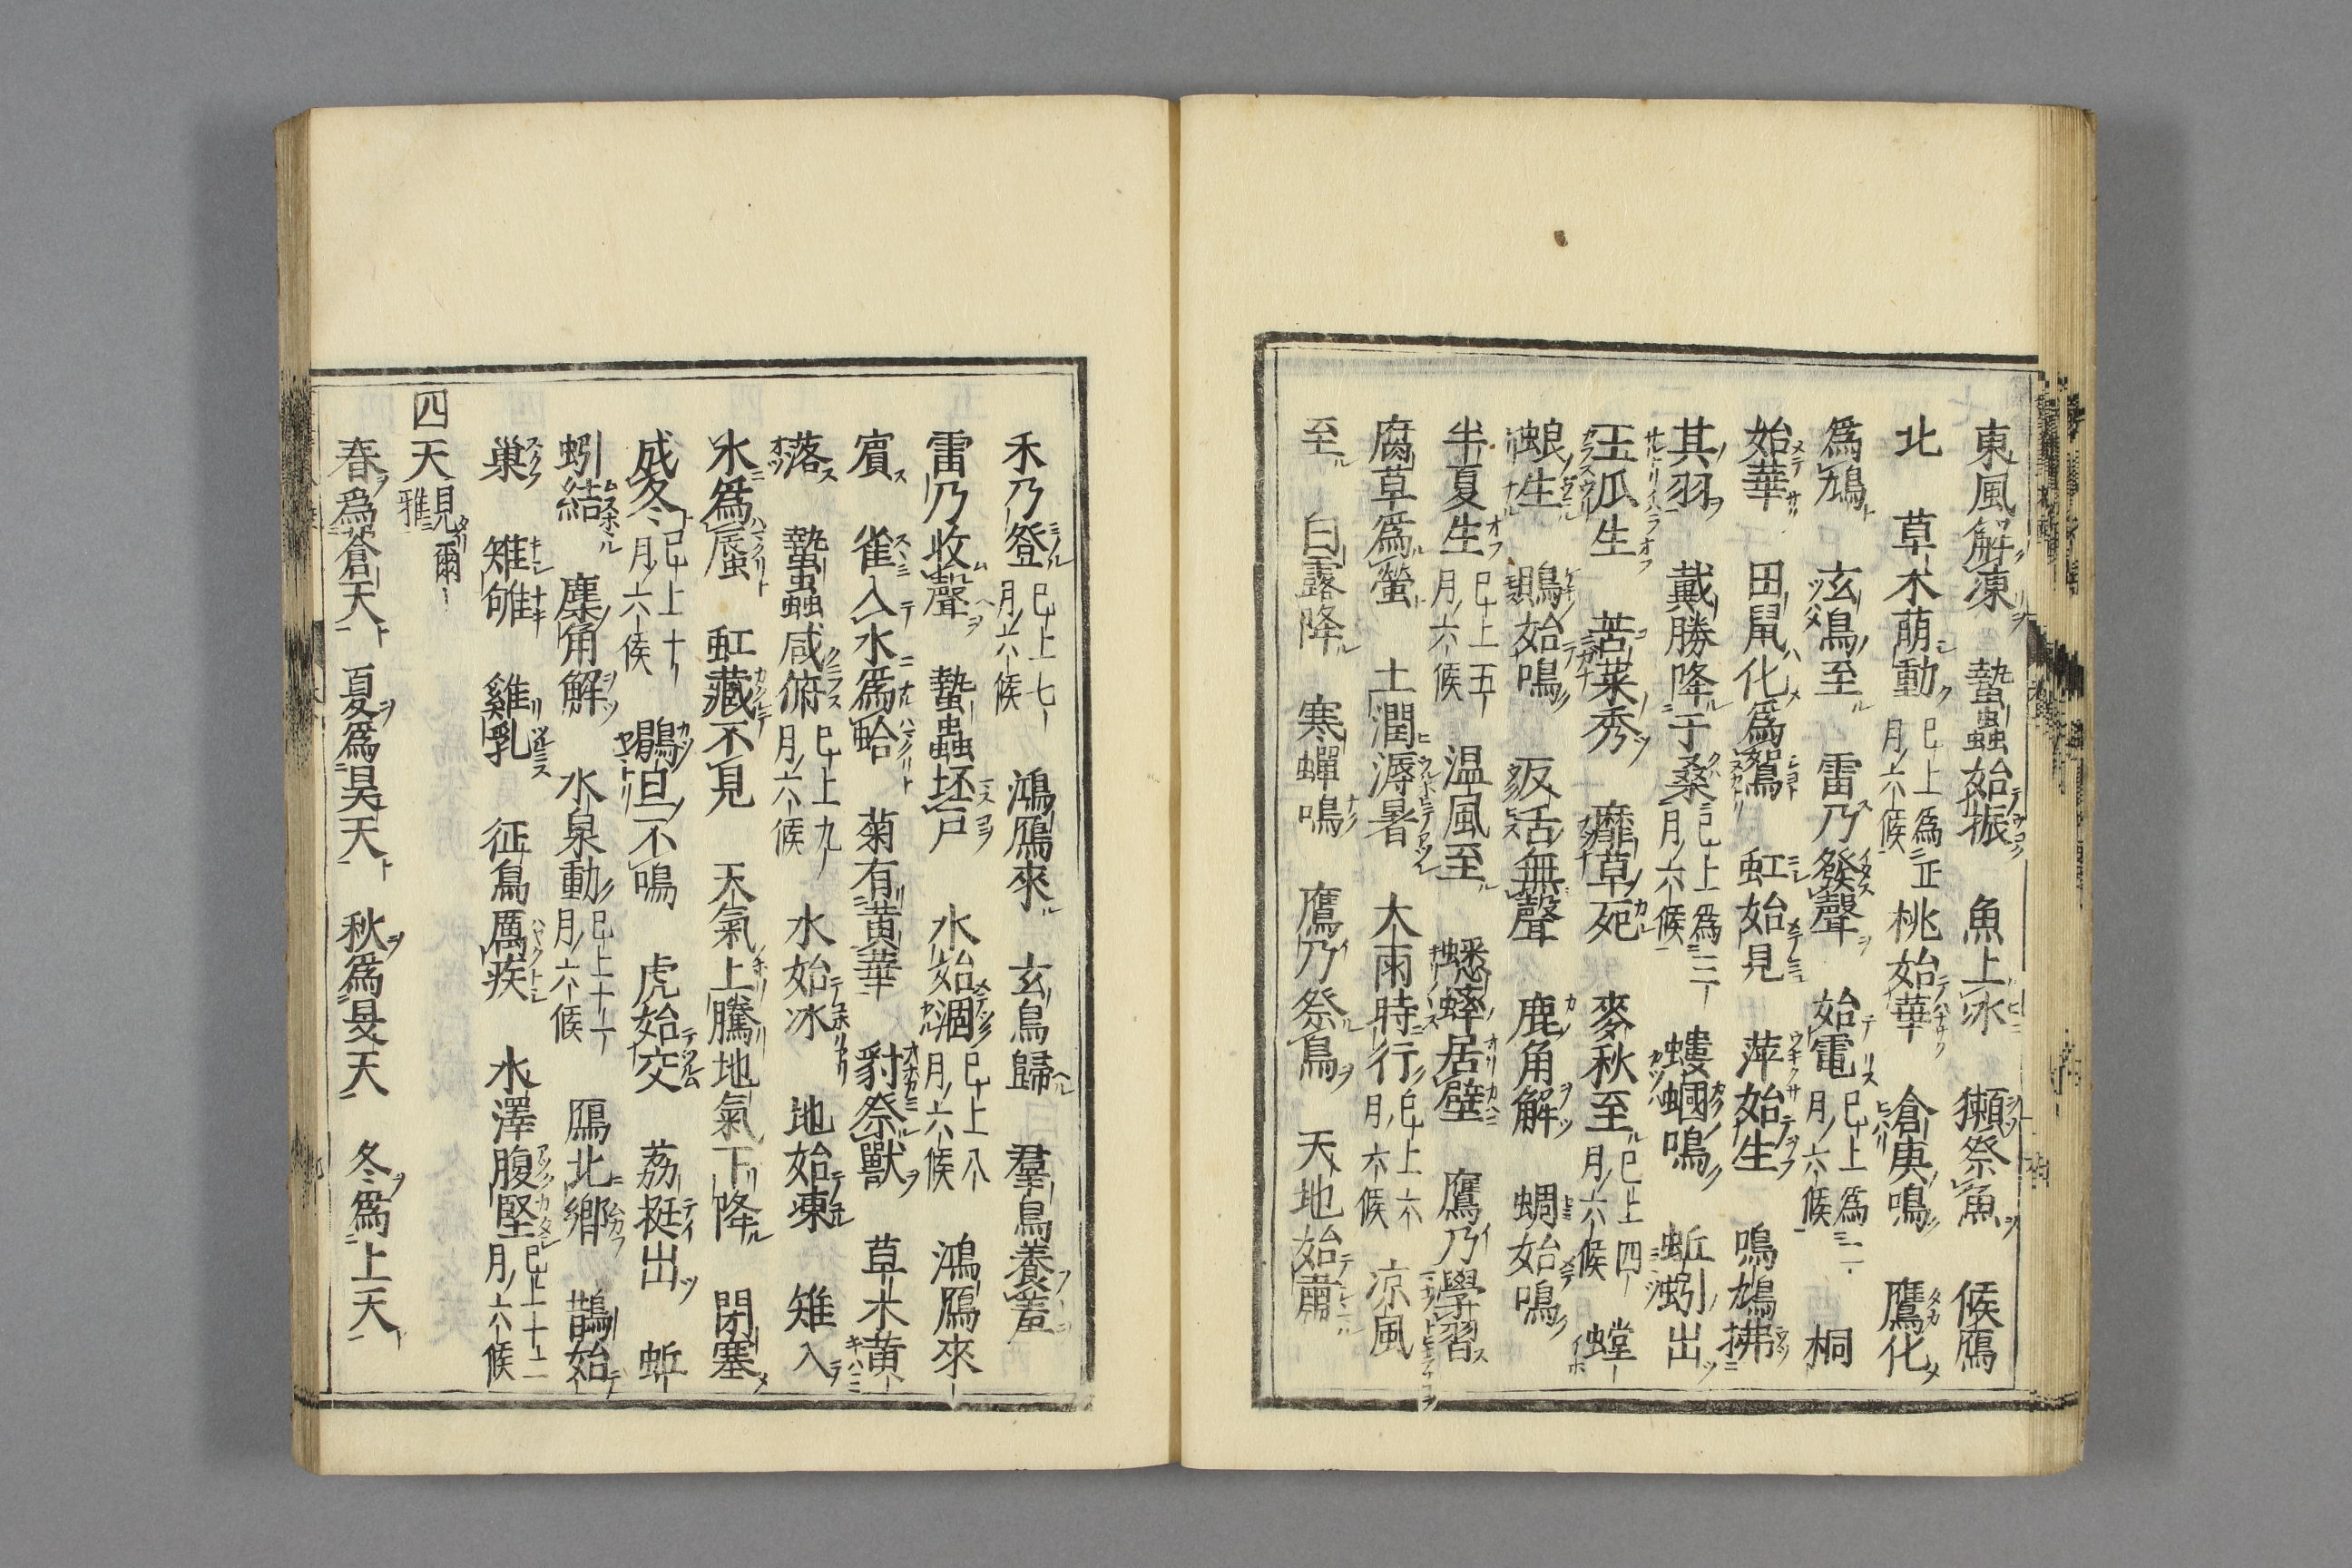 東風解凍　蟄蟲始振　魚上冰　獺祭魚　候鴈
北　草木萠動 已上爲正月六候 桃始華　倉庚鳴　鷹化
爲鳩　玄鳥至　雷乃發聲　始電 已上爲二月六候 桐
始華　田鼠化爲鴽　虹始見　萍始生　鳴鳩拂
其羽　戴勝降于桑 已上爲三月六候 螻蟈鳴　蚯蚓出
王瓜生　苦菜秀　靡草死　麥秋至 已上四月六候 螳
蜋生　鵙始鳴　反舌無聲　鹿角解　蜩始鳴
半夏生 已上五月六候 温風至　蟋蟀居壁　鷹乃學習
腐草爲螢　土潤溽暑　大雨時行 已上六月六候 凉風
至　白露降　寒蟬鳴　鷹乃祭鳥　天地始肅
禾乃登 已上七月六候 鴻鴈來　玄鳥歸　羣鳥養羞
雷乃收聲　蟄蟲坯戸　水始涸 已上八月六候 鴻鴈來
賓　雀入水爲蛤　菊有黄華　豺祭獸　草木黄
落　蟄蟲咸俯 已上九月六候 水始冰　地始凍　雉入
水爲蜃　虹藏不見　天氣上騰地氣下降　閉塞
成冬 已上十月六候 鶡旦不鳴　虎始交　荔挺出　蚯
蚓結　麋角解　水泉動 已上十一月六候 鴈北鄉　鵲始
巢　雉雊　雞乳　征鳥厲疾　水澤腹堅 已上十二月六候
四天 見爾雅
春爲蒼天　夏爲昊天　秋爲旻天　冬爲上天